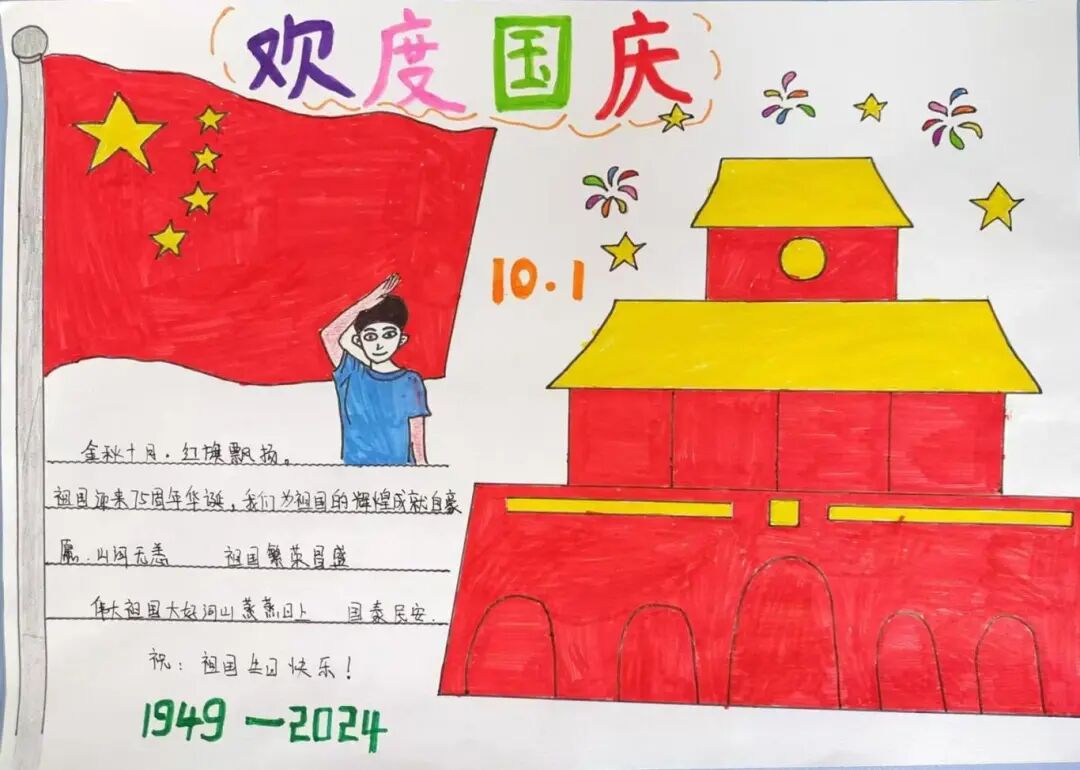 欢度国庆
10.1
金秋十月.红旗飘扬。
祖国迎来75周年华诞,我们为祖国的辉煌成就自豪
愿.山河无恙 祖国繁荣昌盛
伟大祖国大好河山蒸蒸日上 国泰民安.
祝:祖国生日快乐!
1949—2024